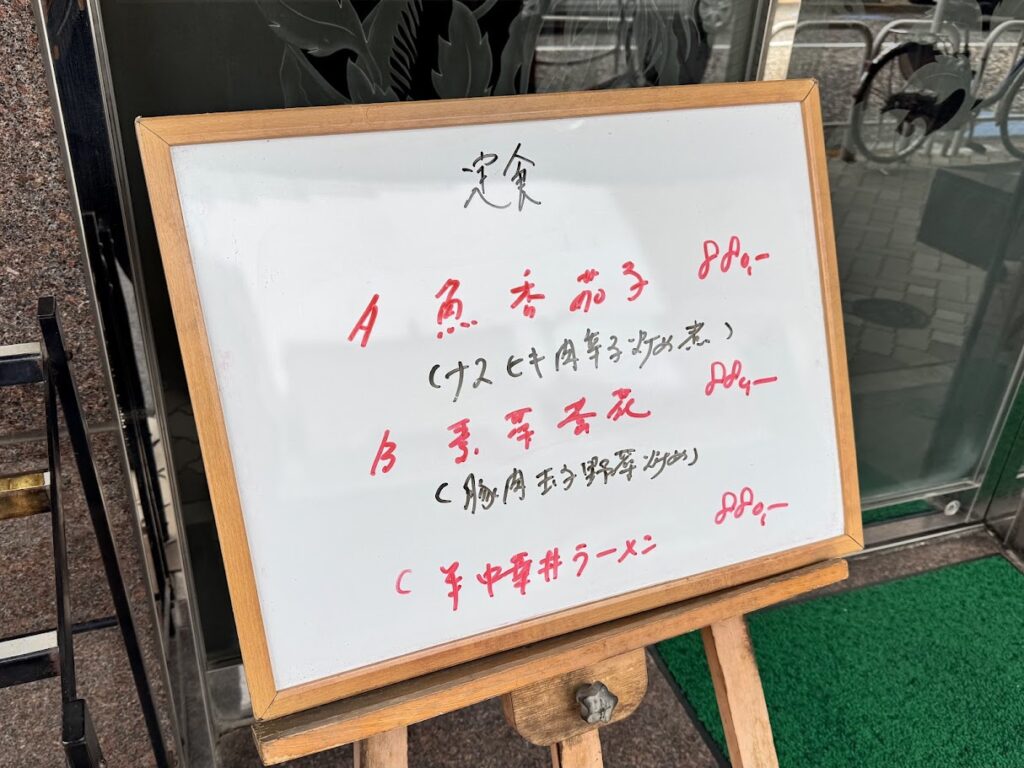 定食
A 魚香茄子 880,-
(ナスヒキ肉辛子炒め煮)
B 青菜蛋花 880,-
(豚肉玉子野菜炒め)
C 半中華丼ラーメン 880,-